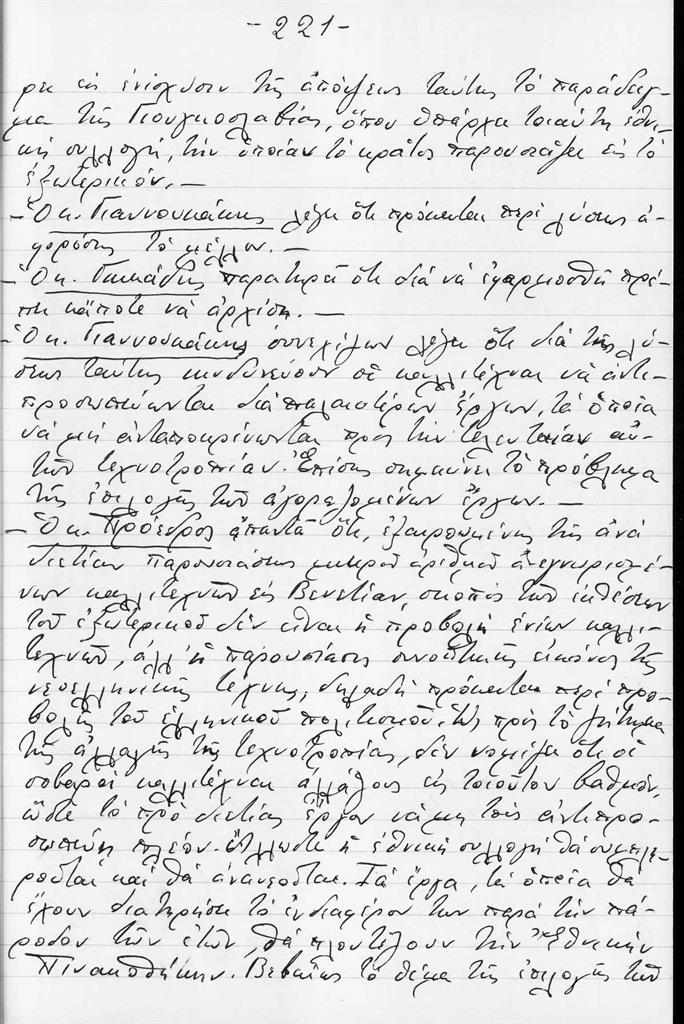 -221-
ρει εἰς ἐνίσχυσιν τῆς ἀπόψεως ταύτης τὸ παράδειγ-
μα τῆς Γιουγκοσλαβίας, ὅπου ὑπάρχει τοιαύτη ἐθνι-
κὴ συλλογή, τὴν ὁποίαν τὸ κράτος παρουσιάζει εἰς τὸ
ἐξωτερικόν.—
-Ὁ κ. Γιαννουκάκης λέγει ὅτι πρόκειται περὶ λύσεως ἀ-
φορώσης τὸ μέλλον.—
-Ὁ κ. παρατηρεῖ ὅτι διὰ νὰ ἐφαρμοσθῆ πρέ-
πει κάποτε νὰ ἀρχίση.—
-Ὁ κ. Γιαννουκάκης συνεχίζων λέγει ὅτι διὰ τῆς λύ-
σεως ταύτης κινδυνεύουν οἱ καλλιτέχναι νὰ ἀντι-
προσωπεύωνται διὰ παλαιοτέρων ἔργων, τὰ ὁποῖα
νὰ μὴ ἀνταποκρίνωνται πρὸς τὴν τελευταίαν αὐ-
τῶν τεχνοτροπίαν. Ἐπίσης σημειώνει τὸ πρόβλημα
τῆς ἐπιλογῆς τῶν ἀγοραζομένων ἔργων.—
-Ὁ κ. Πρόεδρος ἀπαντᾶ ὅτι, ἐξαιρουμένης τῆς ἀνὰ
διετίαν παρουσιάσεως μικροῦ ἀριθμοῦ ἀνεγνωρισμέ-
νων καλλιτεχνῶν εἰς Βενετίαν, σκοπὸς τῶν ἐκθέσεων
τοῦ ἐξωτερικοῦ δὲν εἶναι ἡ προβολὴ ἐνίων καλλι-
τεχνῶν, ἀλλ' ἡ παρουσίασις συνοπτικῆς εἰκόνος τῆς
νεοελληνικῆς τέχνης, δηλαδὴ πρόκειται περὶ προ-
βολῆς τοῦ ἑλληνικοῦ πολιτισμοῦ. Ὡς πρὸς τὸ ζήτημα
τῆς ἀλλαγῆς τῆς τεχνοτροπίας, δὲν νομίζει ὅτι οἱ
σοβαροὶ καλλιτέχναι ἀλλάζουν εἰς τοιοῦτον βαθμόν,
ὥστε τὸ πρὸ διετίας ἔργον νὰ μὴ τοὺς ἀντιπρο-
σωπεύη πλέον. Ἄλλωστε ἡ ἐθνικὴ συλλογὴ θὰ συμπλη-
ροῦται καὶ θὰ ἀνανεοῦται. Τὰ ἔργα, τὰ ὁποῖα θὰ
ἔχουν διατηρήσει τὸ ἐνδιαφέρον των παρὰ τὴν πά-
ροδον τῶν ἐτῶν, θὰ πλουτίζουν τὴν Ἐθνικὴν
Πινακοθήκην. Βεβαίως τὸ θέμα τῆς ἐπιλογῆς τῶν